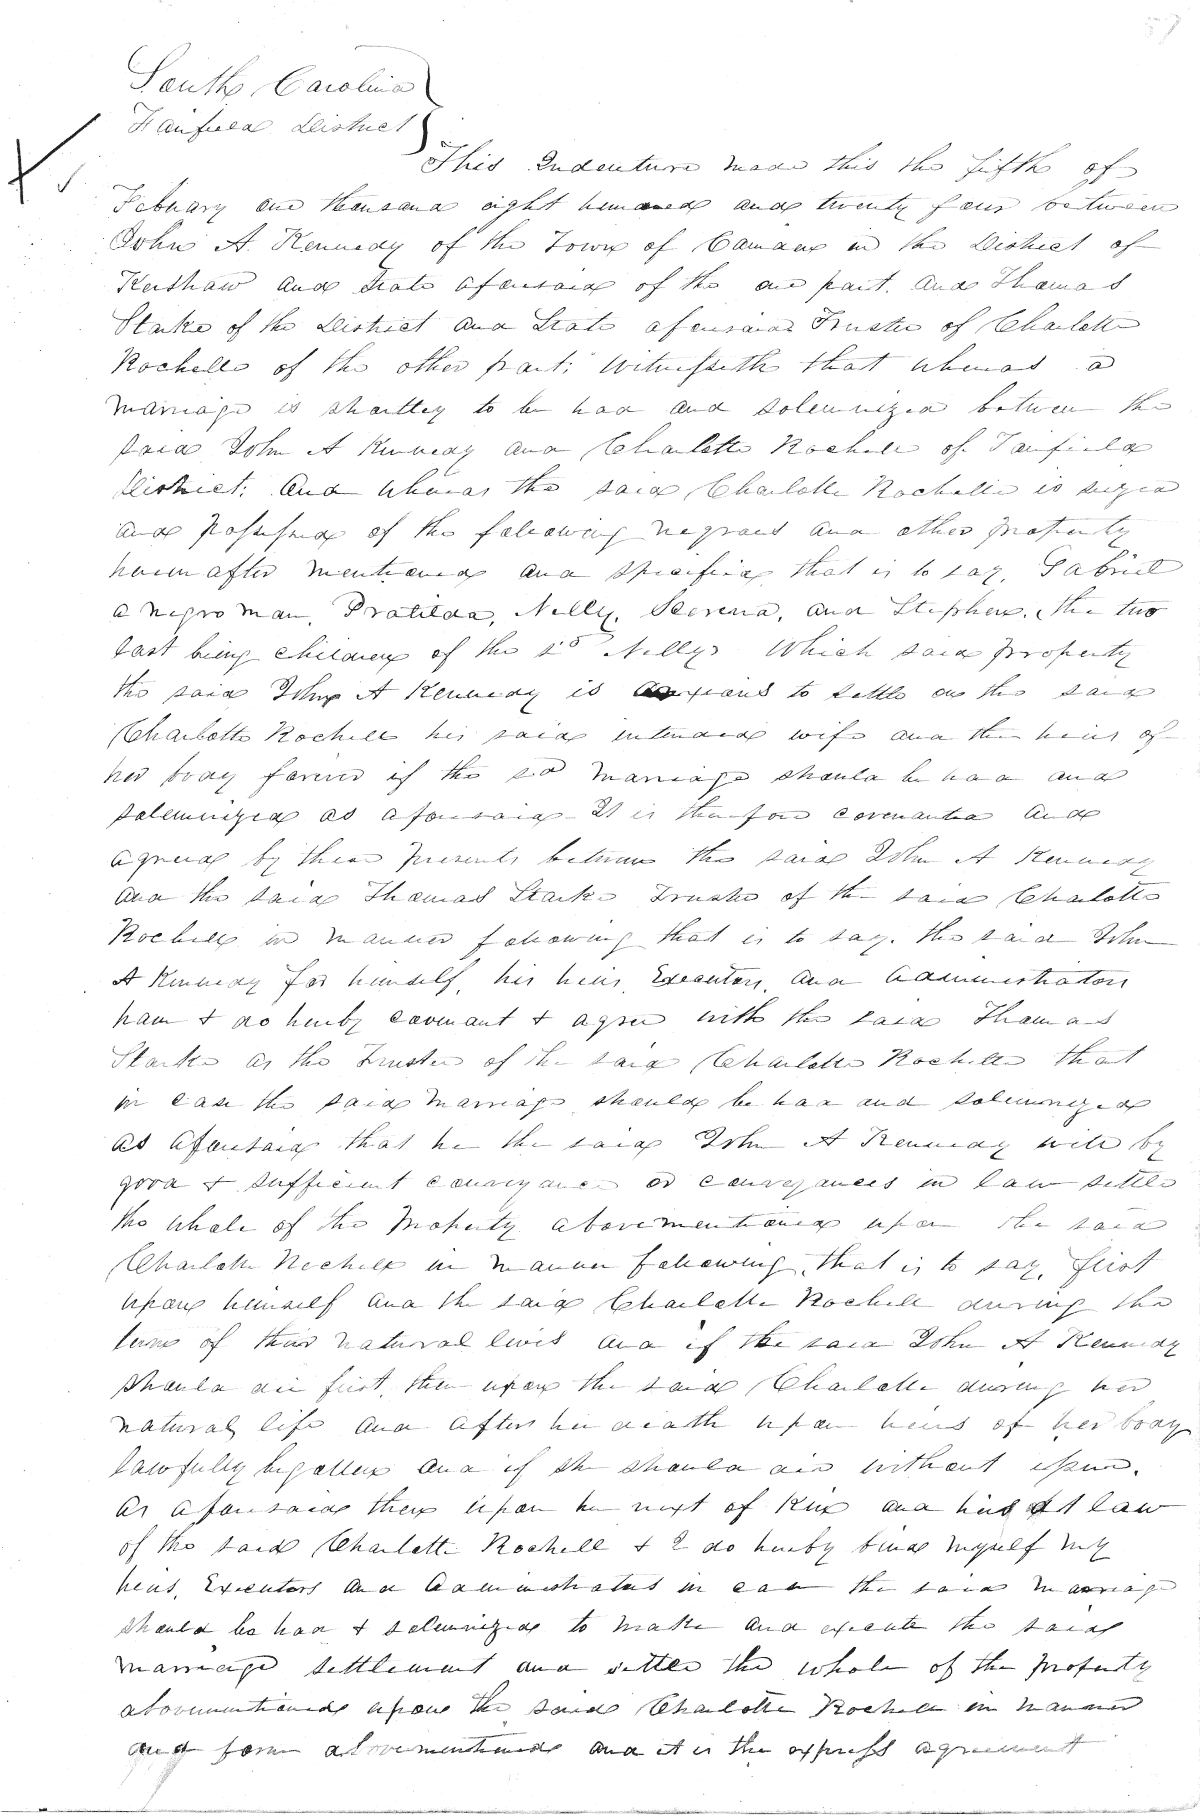 South Carolina
Fairfield District
This Indenture made this the fifth of
Febuary one thousand eight hundred and twenty four between
John A. Kennedy of the Town of Camden in the District of
Kershaw and State aforesaid of the one part. And Thomas
Starke of the District and State aforesaid Trustee of Charlotte
Rochelle of the other part; Witnesseth that whereas a
marriage is shortley to be had and solemnized between the
said John A Kennedy and Charlotte Rochell of Fairfield
District; And whereas the said Charlotte Rochelle is seized
and possessed of the following negroes and other property
herein after mentioned and specified that is to say, Gabriel
a negro man, Pratilda, Nelly, Serena, and Stephen, the two
last being children of the sd Nelly. Which said property
the said John A Kennedy is anxious to settle on the said
Charlotte Rochell his said intended wife and the heirs of
her body forever if the sd marriage should be had and
solemnized as aforesaid It is therefore covenanted and
agreed by these presents between the said John A Kennedy
and the said Thomas Starke Trustee of the said Charlotte
Rochell in manner following that is to say. the said John
A Kennedy for himself, his heirs, Executors, and administrators
have & do hereby covenant & agree with the said Thomas
Starke as the Trustee of the said Charlotte Rochelle that
in case the said marriage should be had and solemnized
as aforesaid that he the said John A Kennedy will by
good & sufficient conveyance or conveyances in law settle
the whole of the property abovementioned upon the said
Charlotte Rochell in manner following, that is to say, first
upon himself and the said Charlotte Rochell during the
term of their natural lives and if the said John A Kennedy
should die first, then upon the said Charlotte during her
natural life and after her death upon heirs of her body
lawfully begotten and if she should die without issue.
as aforesaid then upon her next of Kin and heirs at law
of the said Charlotte Rochell & I do hereby bind myself my
heirs, Executors and administrators in case the said marriage
should be had & solemnized to make and execute the said
marriage settlement and settle the whole of the property
abovementioned upon the said Charlotte Rochell in manner
and form abovementioned and it is the express agreement